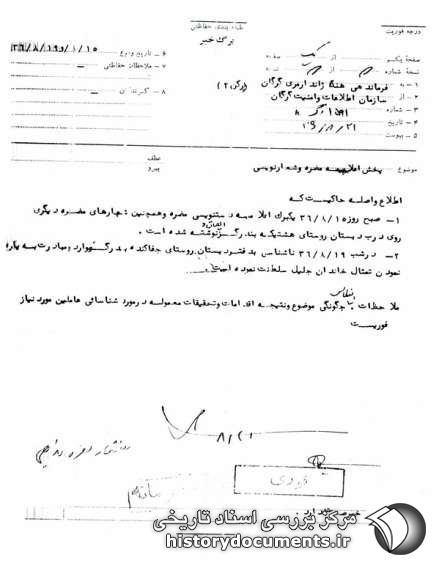 طبقه بندی حفاظتی
برگ خبر
درجه فوریت
صفحه یک از یک صفحه
نسخه شماره از نسخه
۱ – به فرماندهی هنگ ژاندارمری گرگان (رکن ۲)
۲ – از سازمان اطلاعات و امنیت گرگان
۳ – شماره
۴ – تاریخ ۳۶/۸/۲۱
۵ – پیوست
۶ – تاریخ وقوع ۱۵/۸/و۳۶/۸/۱۹
۷ – ملاحظات حفاظتی
۸ – گیرندگان
موضوع پخش اعلامیه مضره و شعارنویسی
عطف
پیرو
اطلاع واصله حاکیست که
۱– صبح روز ۳۶/۸/۱ یکبرگ اعلامیه دستنویس مضره و همچنین شعارهای مضره دیگری
روی درب دبستان روستای هشتیکه بندرگز نوشته شده است.
۲– در شب ۳۶/۸/۱۹ ناشناس به دفتر دبستان روستای جفاکنده بندرگز وارد و مبادرت به پاره
نمودن تمثال خاندان جلیل سلطنت نموده است.
ملاحظات چگونگی موضوع و نتیجه اقدامات و تحقیقات معموله در مورد شناسائی عاملین مورد نیاز
فوریست
۸/۲۱
مرکز بررسی اسناد تاریخی
historydocuments.ir